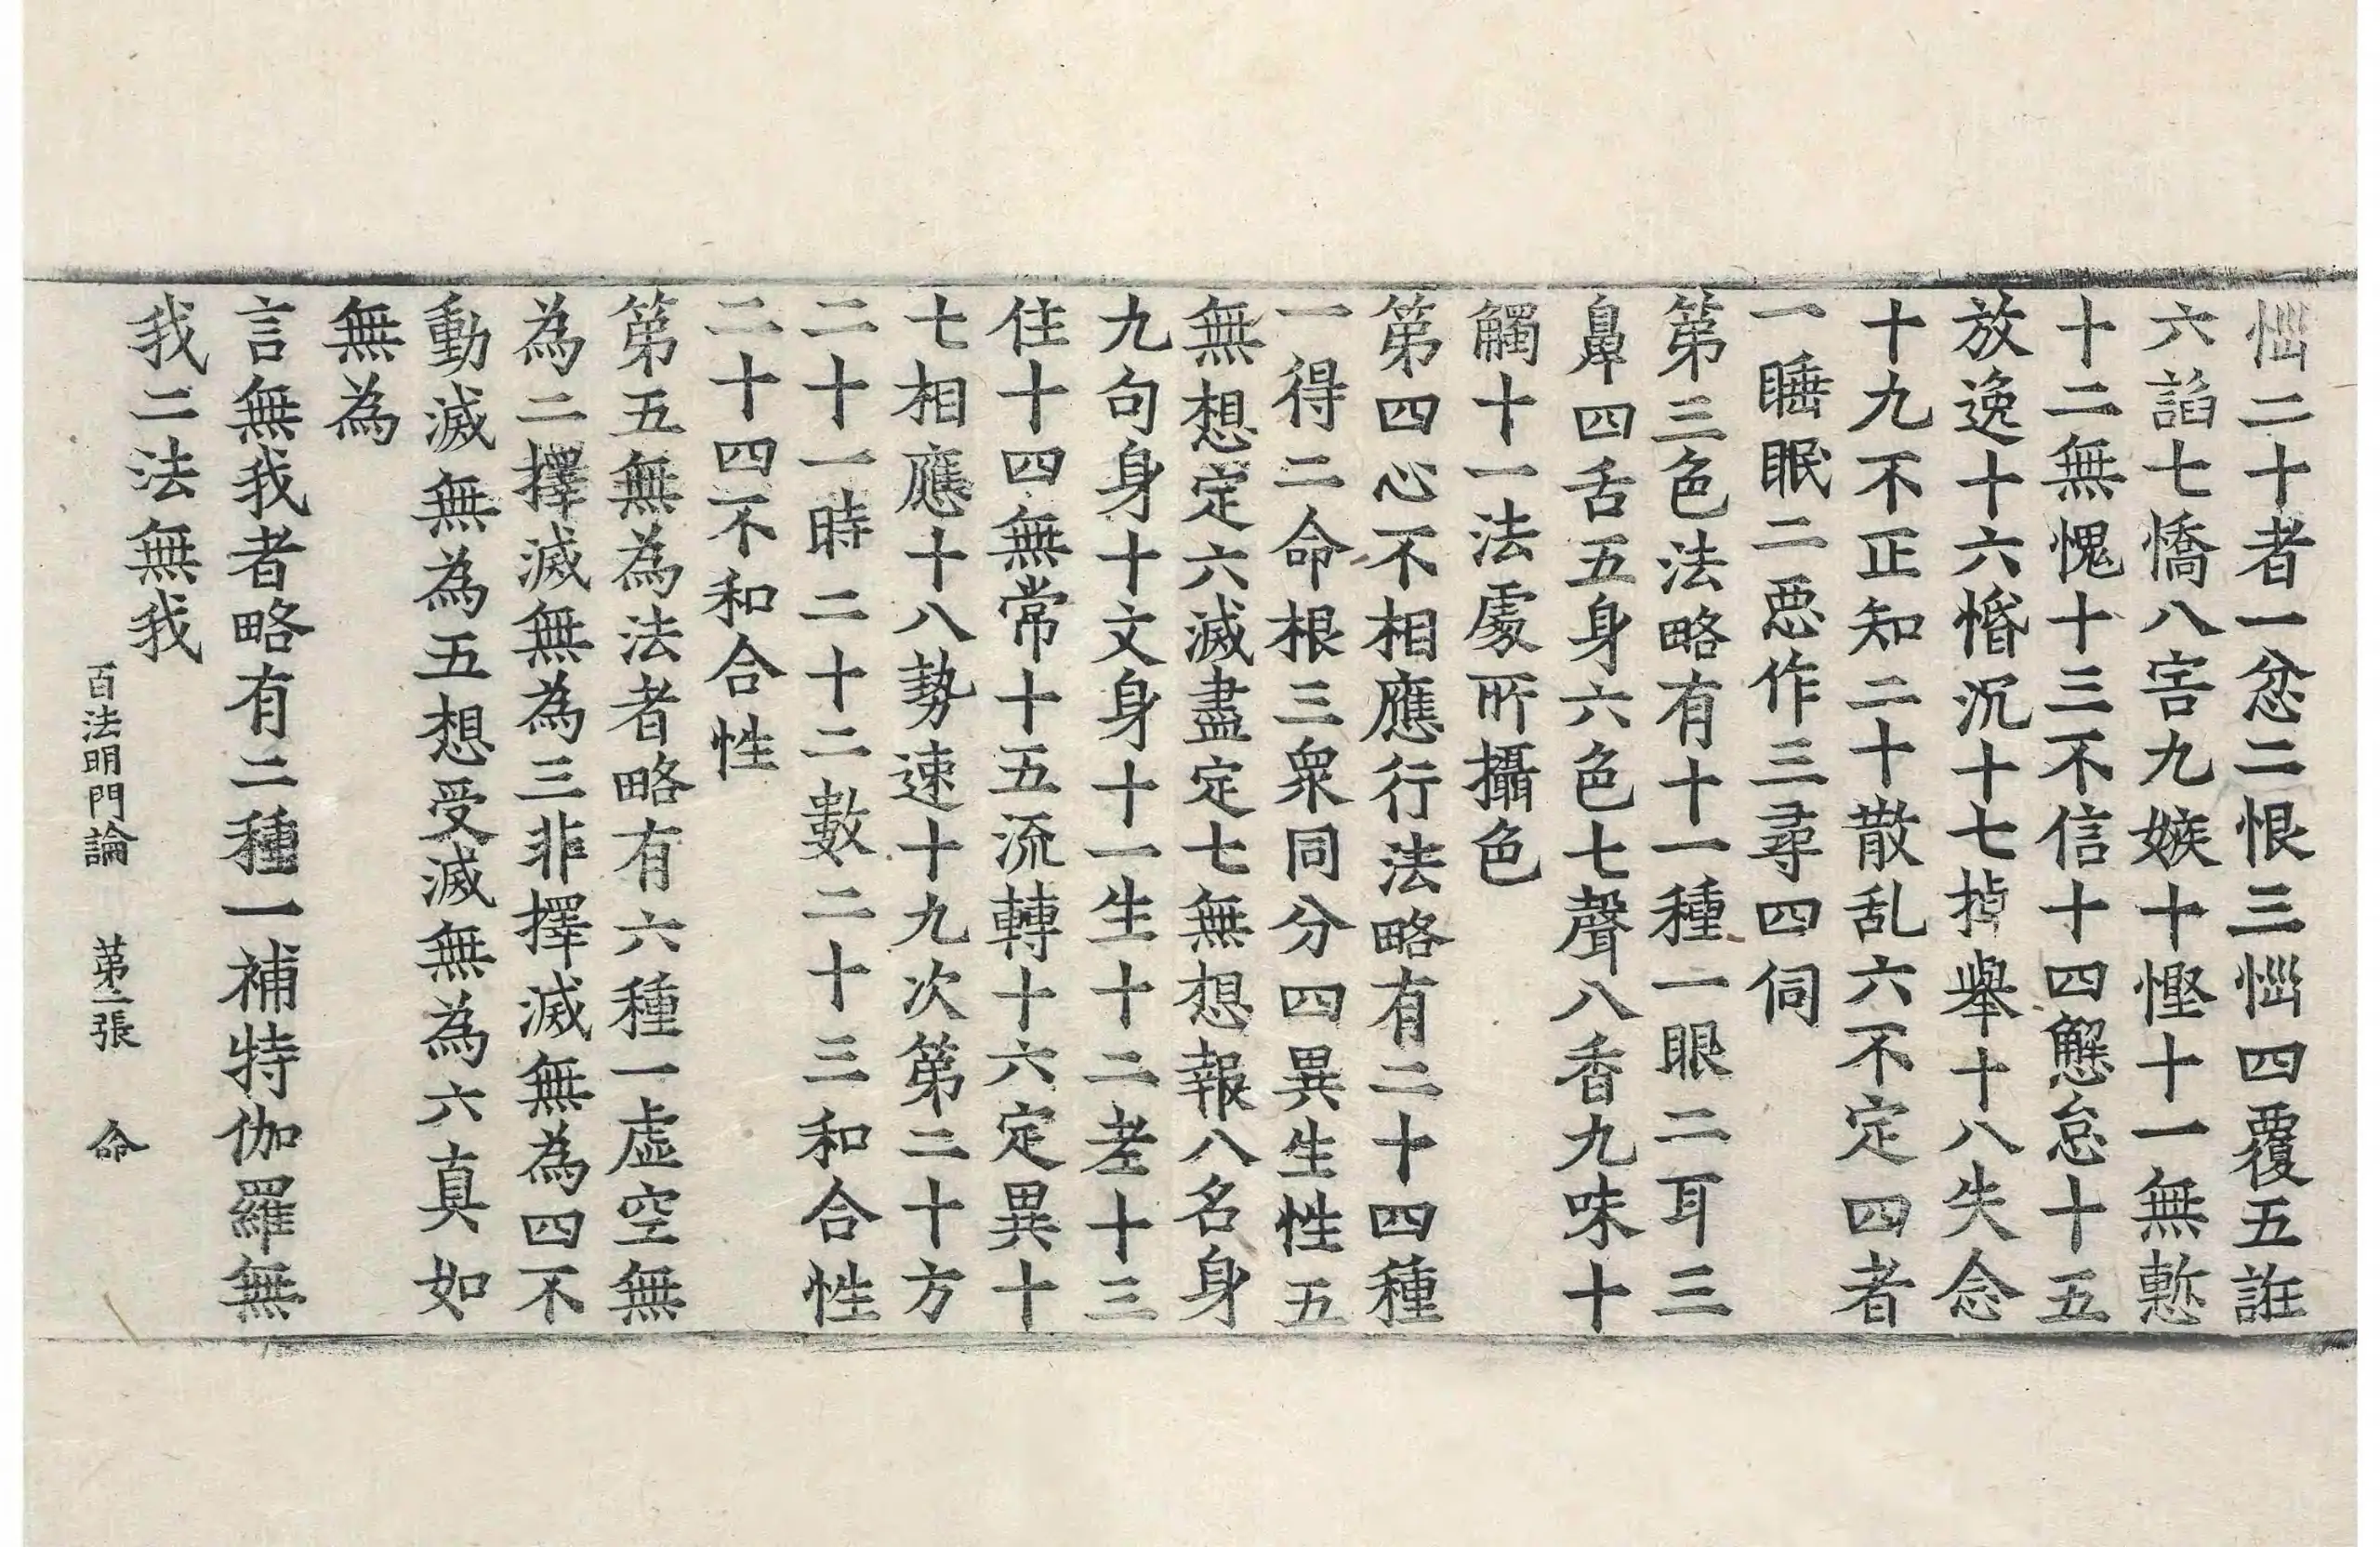 惱二十者一忿二恨三惱四覆五誑
六諂七憍八害九嫉十慳十一無慙
十二無愧十三不信十四懈怠十五
放逸十六惛沉十七掉舉十八失念
十九不正知二十散乱六不定四者
一睡眠二惡作三尋四伺
第三色法略有十一種一眼二耳三
鼻四舌五身六色七聲八香九味十
觸十一法處所攝色
第四心不相應行法略有二十四種
一得二命根三衆同分四異生性五
無想定六滅盡定七無想報八名身
九句身十文身十一生十二老十三
住十四無常十五流轉十六定異十
七相應十八勢速十九次第二十方
二十一時二十二數二十三和合性
二十四不和合性
第五無為法者略有六種一虛空無
為二擇滅無為三非擇滅無為四不
動滅無為五想受滅無為六真如
無為
言無我者略有二種一補特伽羅無
我二法無我
百法明門論 苐二張 命